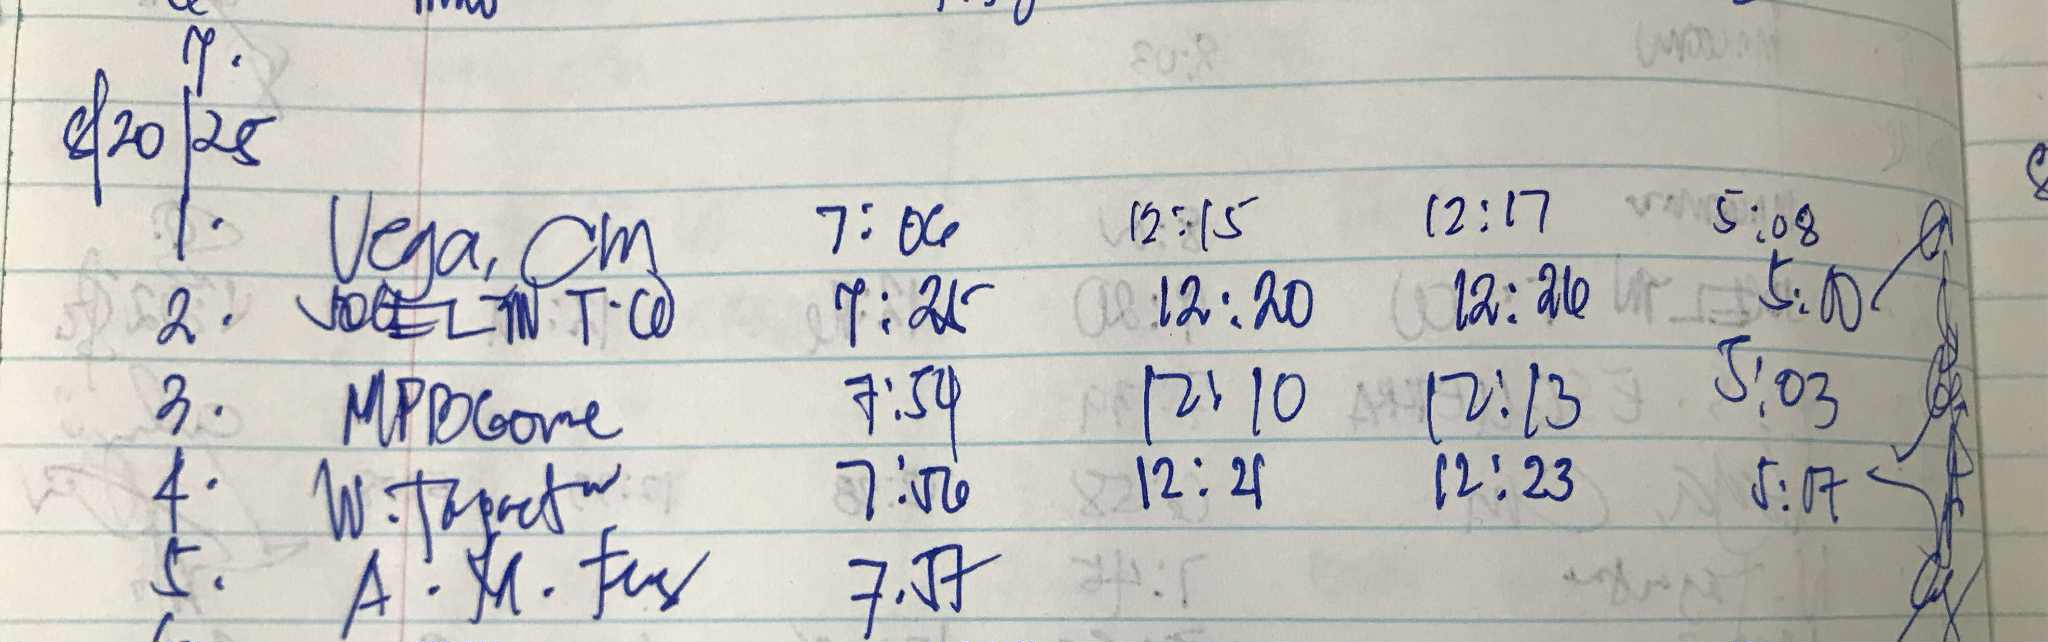 7.
8/20/25
1. Vega, CM 7:06 12:15 12:17 5:08
2. JOCELIN T. CO 7:25 12:20 12:26 5:10
3. MPBGome 7:54 12:10 12:13 5:03
4. W. 7:56 12:21 12:23 5:17
5. A. M. 7.57